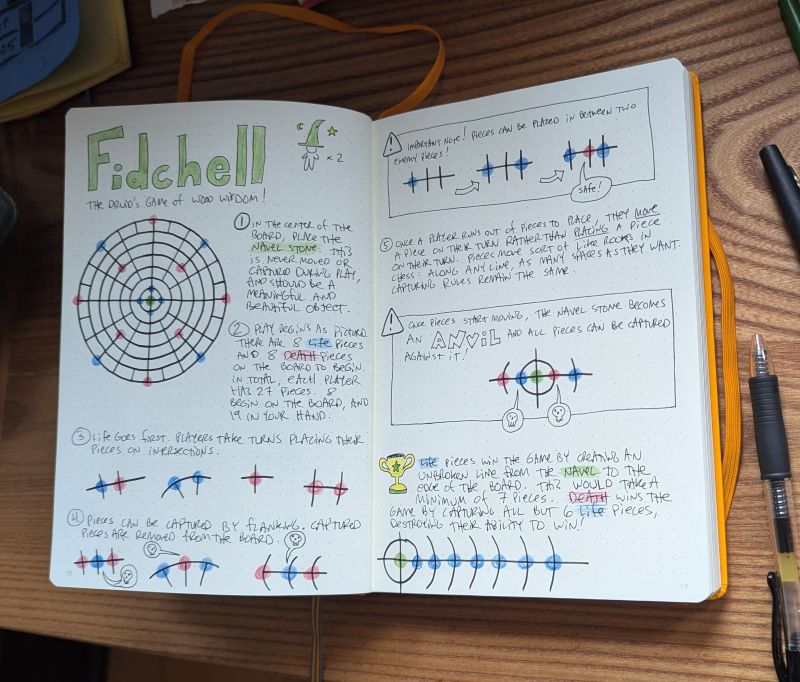 Fidchell
× 2
THE DRUID'S GAME OF WOOD WISDOM!
① IN THE CENTER OF THE
BOARD, PLACE THE
NAVEL STONE. THIS
IS NEVER MOVED OR
CAPTURED DURING PLAY,
AND SHOULD BE A
MEANINGFUL AND
BEAUTIFUL OBJECT.
② PLAY BEGINS AS PICTURED.
THERE ARE 8 Life PIECES
AND 8 DEATH PIECES
ON THE BOARD TO BEGIN
IN TOTAL, EACH PLAYER
HAS 27 PIECES. 8
BEGIN ON THE BOARD, AND
19 IN YOUR HAND.
③ LIFE GOES FIRST. PLAYERS TAKE TURNS PLACING THEIR
PIECES ON INTERSECTIONS.
④ PIECES CAN BE CAPTURED BY FLANKING. CAPTURED
PIECES ARE REMOVED FROM THE BOARD.
16
! IMPORTANT NOTE! PIECES CAN BE PLACED IN BETWEEN TWO
ENEMY PIECES!
SAFE!
⑤ ONCE A PLAYER RUNS OUT OF PIECES TO PLACE, THEY MOVE
A PIECE ON THEIR TURN RATHER THAN PLACING A PIECE
ON THEIR TURN. PIECES MOVE SORT OF LIKE ROOKS IN
CHESS: ALONG ANY LINE, AS MANY SPACES AS THEY WANT.
CAPTURING RULES REMAIN THE SAME.
! ONCE PIECES START MOVING, THE NAVEL STONE BECOMES
AN ANVIL AND ALL PIECES CAN BE CAPTURED
AGAINST IT!
Life PIECES WIN THE GAME BY CREATING AN
UNBROKEN LINE FROM THE NAVEL TO THE
EDGE OF THE BOARD. THIS WOULD TAKE A
MINIMUM OF 7 PIECES. DEATH WINS THE
GAME BY CAPTURING ALL BUT 6 Life PIECES,
DESTROYING THEIR ABILITY TO WIN!
17